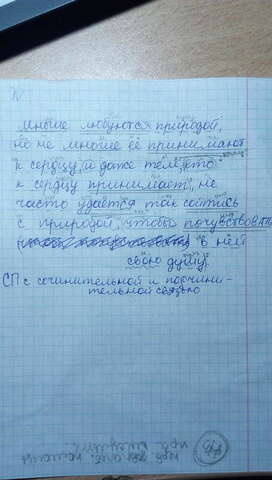 Многие любуются природой,
но не многие её принимают
к сердцу, и даже тем, кто
к сердцу принимает, не
часто удаётся так сойтись
с природой, чтобы почувствовать
в ней
свою душу.
СП с сочинительной и подчини-
тельной связью